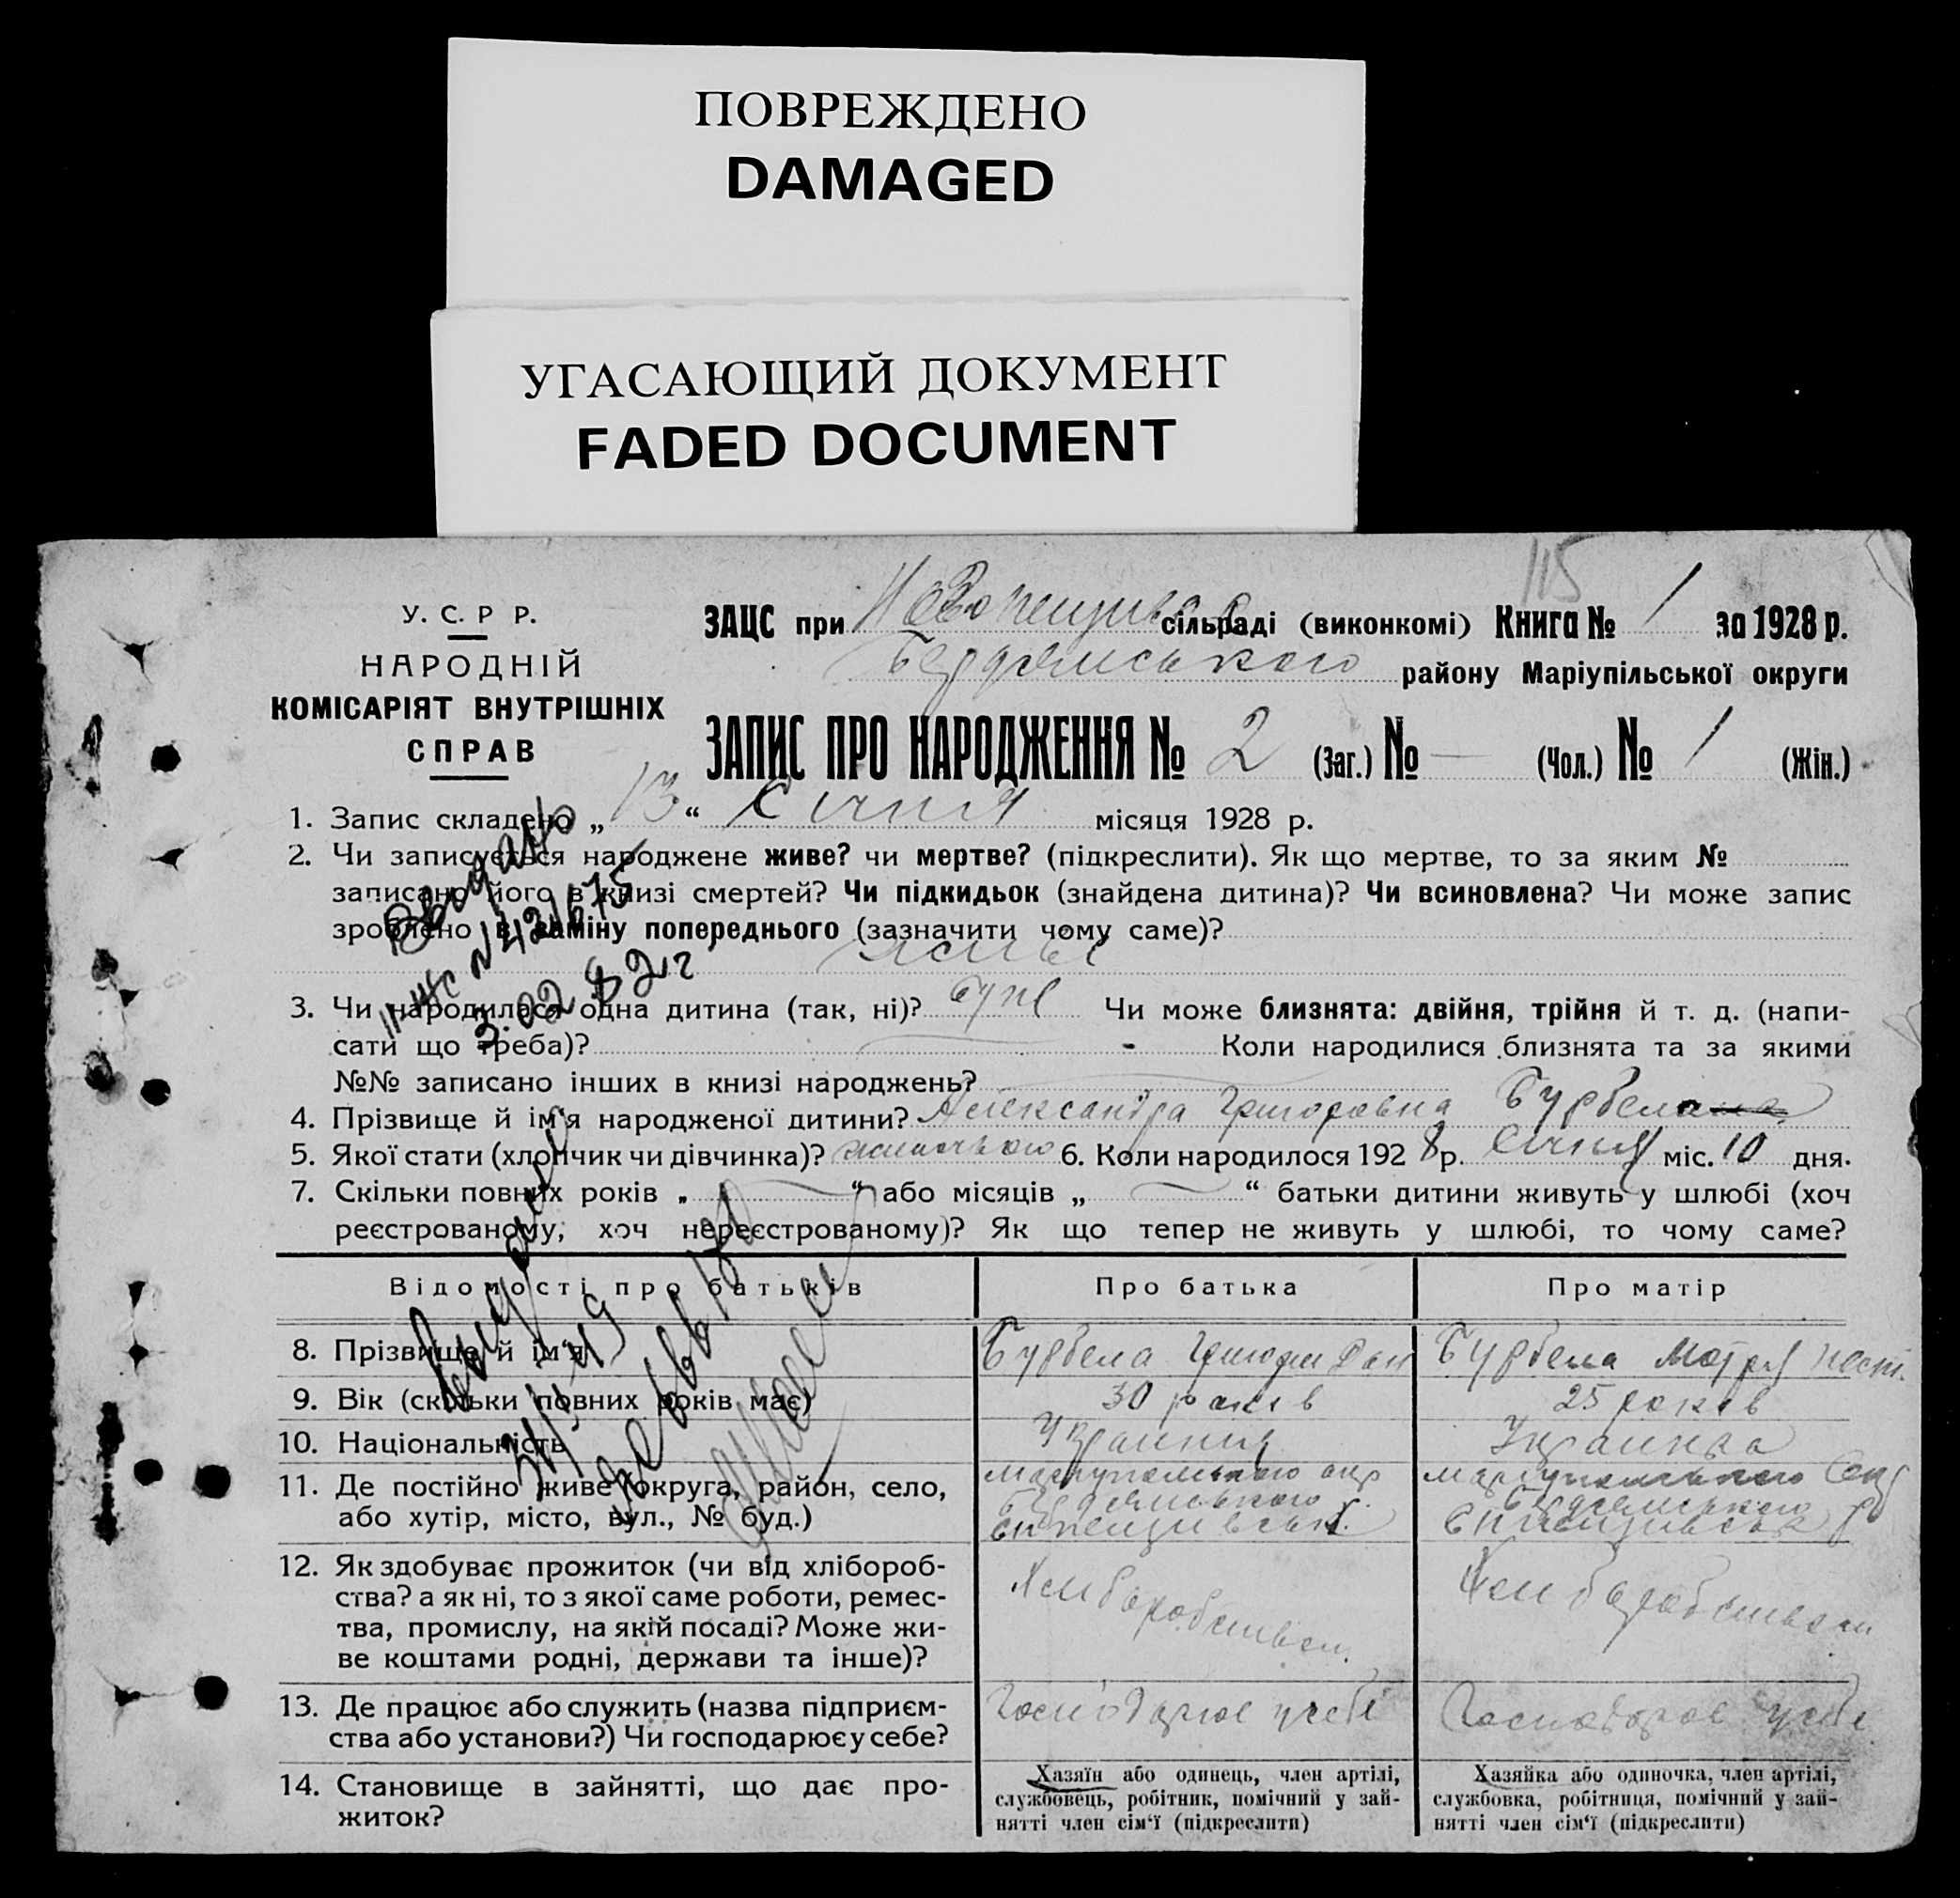 ПОВРЕЖДЕНО
DAMAGED
УГАСАЮЩИЙ ДОКУМЕНТ
FADED DOCUMENT
115
У. С. Р Р.
НАРОДНІЙ
КОМІСАРІЯТ ВНУТРІШНІХ
СПРАВ
ЗАЦС при сільраді (виконкомі) Книга № 1 за 1928 р.
району Маріупільської округи
ЗАПИС ПРО НАРОДЖЕННЯ № 2 (Заг.) № — (Чол.) № 1 (Жін.)
1. Запис складено „ 13 “ Січня місяця 1928 р.
2. Чи записується народжене живе? чи мертве? (підкреслити). Як що мертве, то за яким №
записано його в книзі смертей? Чи підкидьок (знайдена дитина)? Чи всиновлена? Чи може запис
зроблено в заміну попереднього (зазначити чому саме)?
3. Чи народилася одна дитина (так, ні)? Чи може близнята: двійня, трійня й т. д. (напи-
сати що треба)? - Коли народилися близнята та за якими
№№ записано інших в книзі народжень?
4. Прізвище й ім'я народженої дитини? Александра Григоровна Бурбела
5. Якої стати (хлопчик чи дівчинка)? 6. Коли народилося 192 8 р. Січня міс. 10 дня.
7. Скільки повних років „ “ або місяців „ “ батьки дитини живуть у шлюбі (хоч
реєстрованому, хоч нереєстрованому)? Як що тепер не живуть у шлюбі, то чому саме?
Відомості про батьків Про батька Про матір
8. Прізвище й ім'я Бурбела Григори Дан Бурбела Мотря
9. Вік (скільки повних років має) 30 років 25 років
10. Національність Украинец Украинка
11. Де постійно живе (округа, район, село,
або хутір, місто, вул., № буд.)
12. Як здобуває прожиток (чи від хлібороб-
ства? а як ні, то з якої саме роботи, ремес-
тва, промислу, на якій посаді? Може жи-
ве коштами родні, держави та інше)?
13. Де працює або служить (назва підприєм-
ства або установи?) Чи господарює у себе?
Господарює у себе Господарює у себе
14. Становище в зайнятті, що дає про-
житок?
Хазяїн або одинець, член артілі,
службовець, робітник, помічний у зай-
нятті член сім'ї (підкреслити)
Хазяйка або одиночка, член артілі,
службовка, робітниця, помічний у зай-
нятті член сім'ї (підкреслити)
3.02 82г